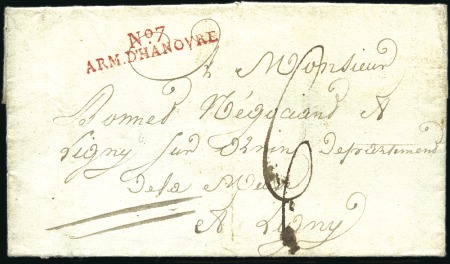 No 7
ARM. D'HANOVRE
A Monsieur
Bonnet Négociand A
Ligny sur Ornin Departement
de la Meuse
A Ligny